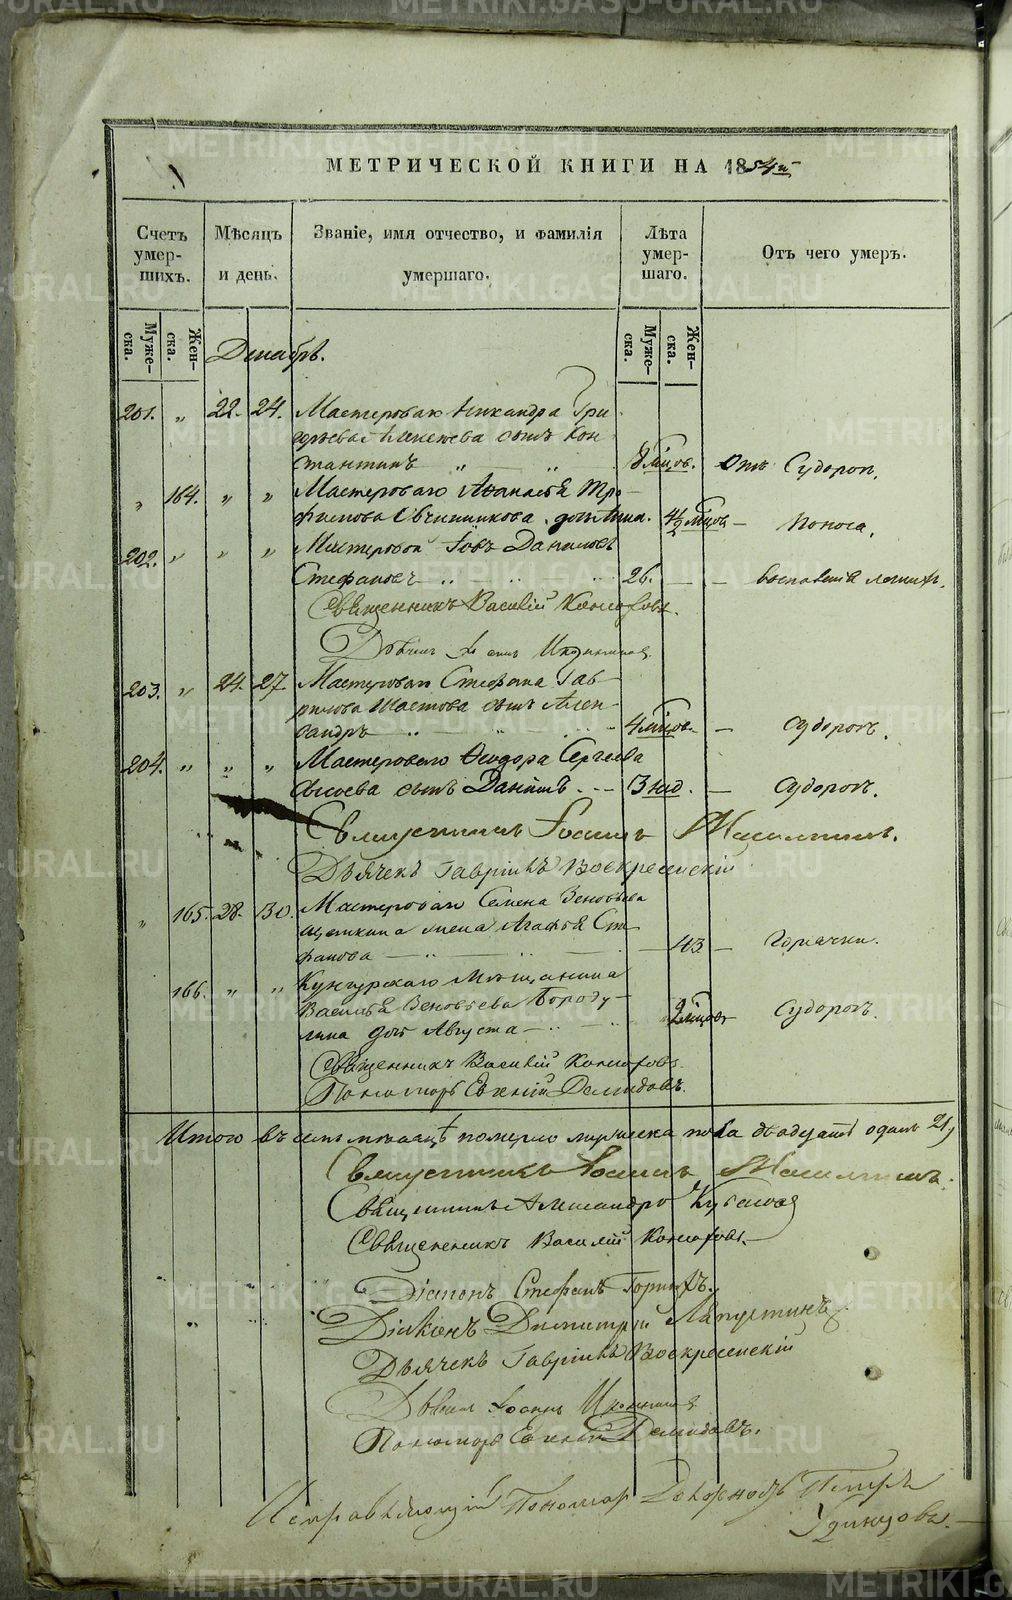 МЕТРИЧЕСКОЙ КНИГИ НА 1854й
Счетъ умер-шихъ.
Мѣсяцъ и день.
Званіе, имя отчество, и фамилія умершаго.
Лѣта умер-шаго.
Отъ чего умеръ.
Муже-ска.
Жен-ска.
Муже-ска.
Жен-ска.
Декабрь.
201. „ 22. 24. Мастероваго Никандра Гри-
горьева сынъ Кон-
стантинъ „ „ 8 мѣсяцов. Отъ Судорог.
„ 164. „ „ Мастероваго Аѳанасія Тро-
фимова Овчинникова дочь Анна. 4½ мѣсяцов — Поноса.
202. „ „ „ Мастеровой Іовъ Даниловъ
Стефановъ 26. — — воспаленія легкихъ.
Священникъ Василій Комаровъ.
Дьячекъ Іоаннъ
203. „ 24. 27. Мастероваго Стефана Гав-
рилова сынъ Алек-
сандръ 4 мѣсяцов. — Судорогъ.
204. „ „ „ Мастероваго Ѳеодора Сергѣева
сынъ Даніилъ 3 нед. — Судорогъ.
Священникъ Іоаннъ
Дьячекъ Гавріилъ Воскресенскій
„ 165. 28. 30. Мастероваго Семена Зеновьева
Щеткина жена Агафья Сте-
фанова — 43 — Горячки.
166. „ „ Кунгурскаго Мѣщанина
Василья Зеновьева Бороду-
лина дочь Августа 2 мѣсяцов Судорогъ.
Священникъ Василій Комаровъ.
Пономарь Евгеній Демидовъ.
Итого въ семъ мѣсяцѣ померло мужеска пола двадцать одинъ 21,
Священникъ Іоаннъ
Священникъ Александръ
Священникъ Василій Комаровъ.
Діаконъ Стефанъ
Діаконъ Димитрій Лапустинъ
Дьячекъ Гавріилъ Воскресенскій
Дьячекъ Іоаннъ
Пономарь Евгеній Демидовъ.
Исправляющій Пономар Должность Петръ
Удинцовъ.
METRIKI.GASO-URAL.RU